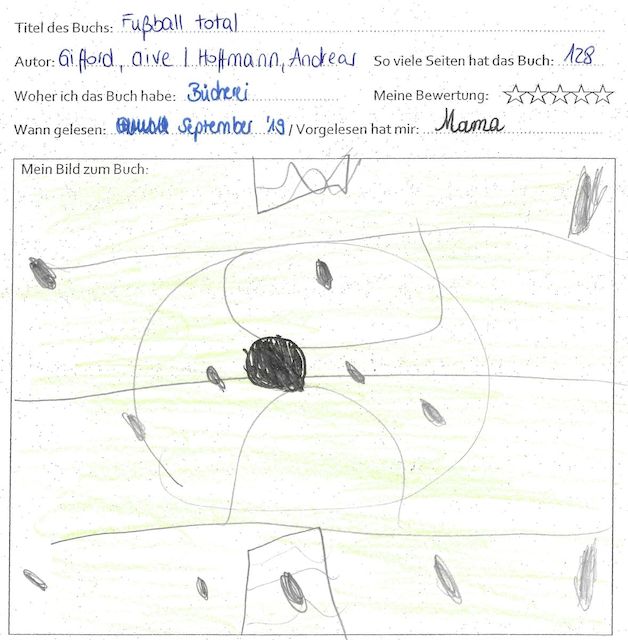 Titel des Buchs: Fußball total
Autor: Gifford, Clive / Hoffmann, Andreas So viele Seiten hat das Buch: 128
Woher ich das Buch habe: Bücherei Meine Bewertung:
Wann gelesen: September '19 / Vorgelesen hat mir: Mama
Mein Bild zum Buch: